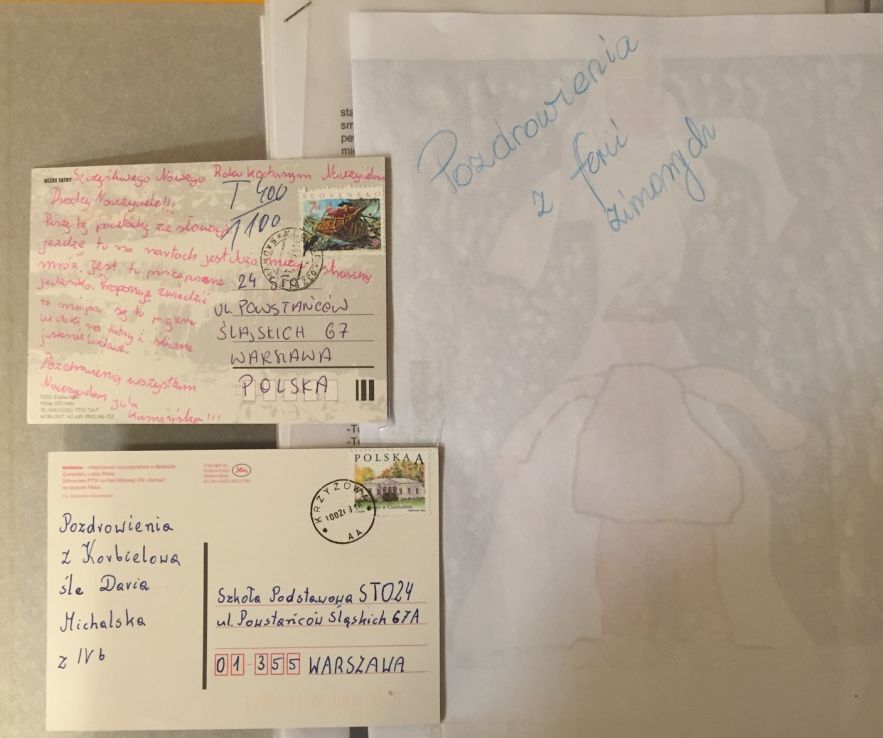 Pozdrowienia
z ferii
zimowych
NÍZKE TATRY
Szczęśliwego Nowego Roku kochanym Nauczycielom
Drodzy Nauczyciele!!!
Piszę tę pocztówkę ze słowacji
jeżdżę tu na nartach jest dużo śniegu i straszny
mróz. Jest tu przepiękne
jedzonko. Proponuję zwiedzić
to miejsce są tu piękne
widoki na tatry i śliczne
jaskinie lodowe.
Pozdrowienia wszystkim
Nauczycielom Jula
Kamińska!!!
T 400
T 100
SLOVENSKO
7
24 STO
UL. POWSTAŃCÓW
ŚLĄJSKICH 67
WARSZAWA
POLSKA
Korbielów
POLSKA A
KRZYŻOWA
AA
Pozdrowienia
z Korbielowa
śle Daria
Michalska
z IVb
Szkoła Podstawowa STO24
ul. Powstańców Śląskich 67A
01-355 WARSZAWA